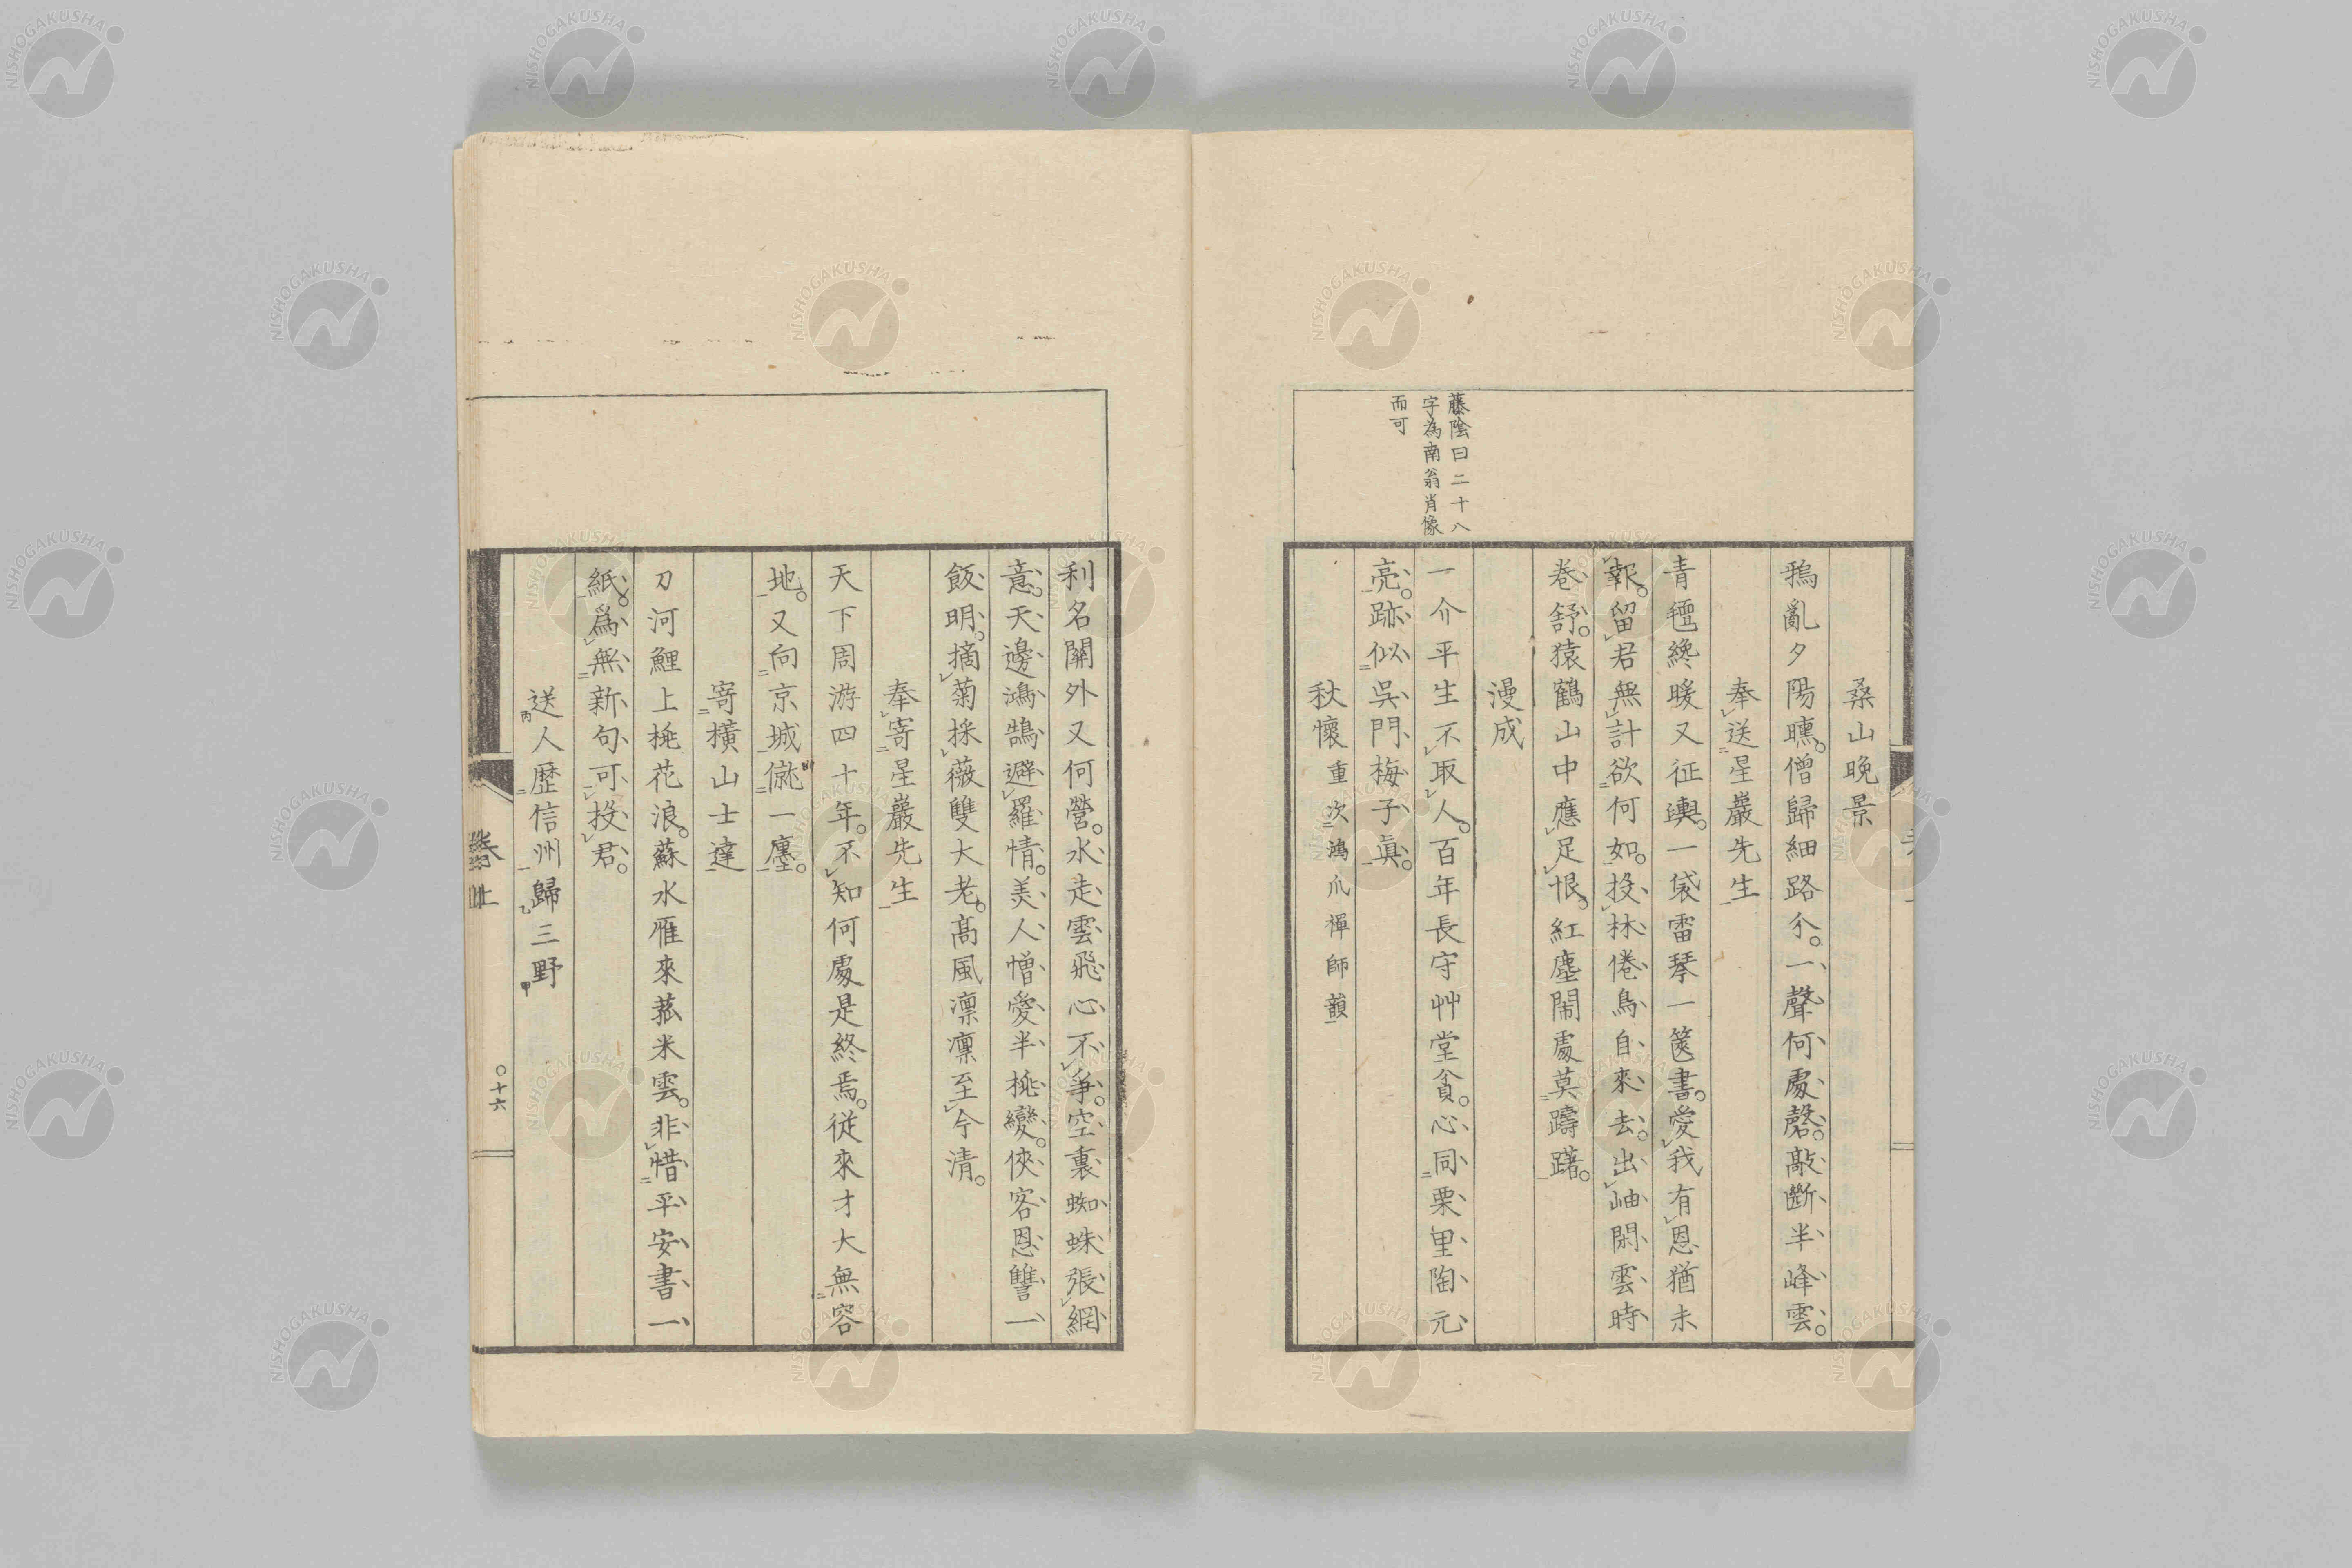 桑山晩景
鴉亂夕陽曛。僧歸細路分。一聲何處磬。敲斷半峰雲。
奉送星巖先生
青氊纔暖又征輿。一袋雷琴一篋書。愛我有恩猶未
報。留君無計欲何如。投林倦鳥自來去。出岫閑雲時
卷舒。猿鶴山中應足恨。紅塵鬧處莫躊躇。
漫成
一介平生不取人。百年長守艸堂貧。心同栗里陶元
亮。跡似吳門梅子眞。
秋懷重次鴻爪禪師韻
藤陰曰二十八
字為南翁肖像
而可
利名關外又何營。水走雲飛心不爭。空裏蜘蛛張網
意。天邊鴻鵠避羅情。美人憎愛半桃變。俠客恩讐一
飯明。摘菊採薇雙大老。髙風凛凛至今清。
奉寄星巖先生
天下周游四十年。不知何處是終焉。従來才大無容
地。又向京城僦一廛。
寄横山士達
刀河鯉上桃花浪。蘇水雁來菰米雲。非惜平安書一
紙。爲無新句可投君。
送人歴信州歸三野
卷上
〇十六
NISHOGAKUSHA